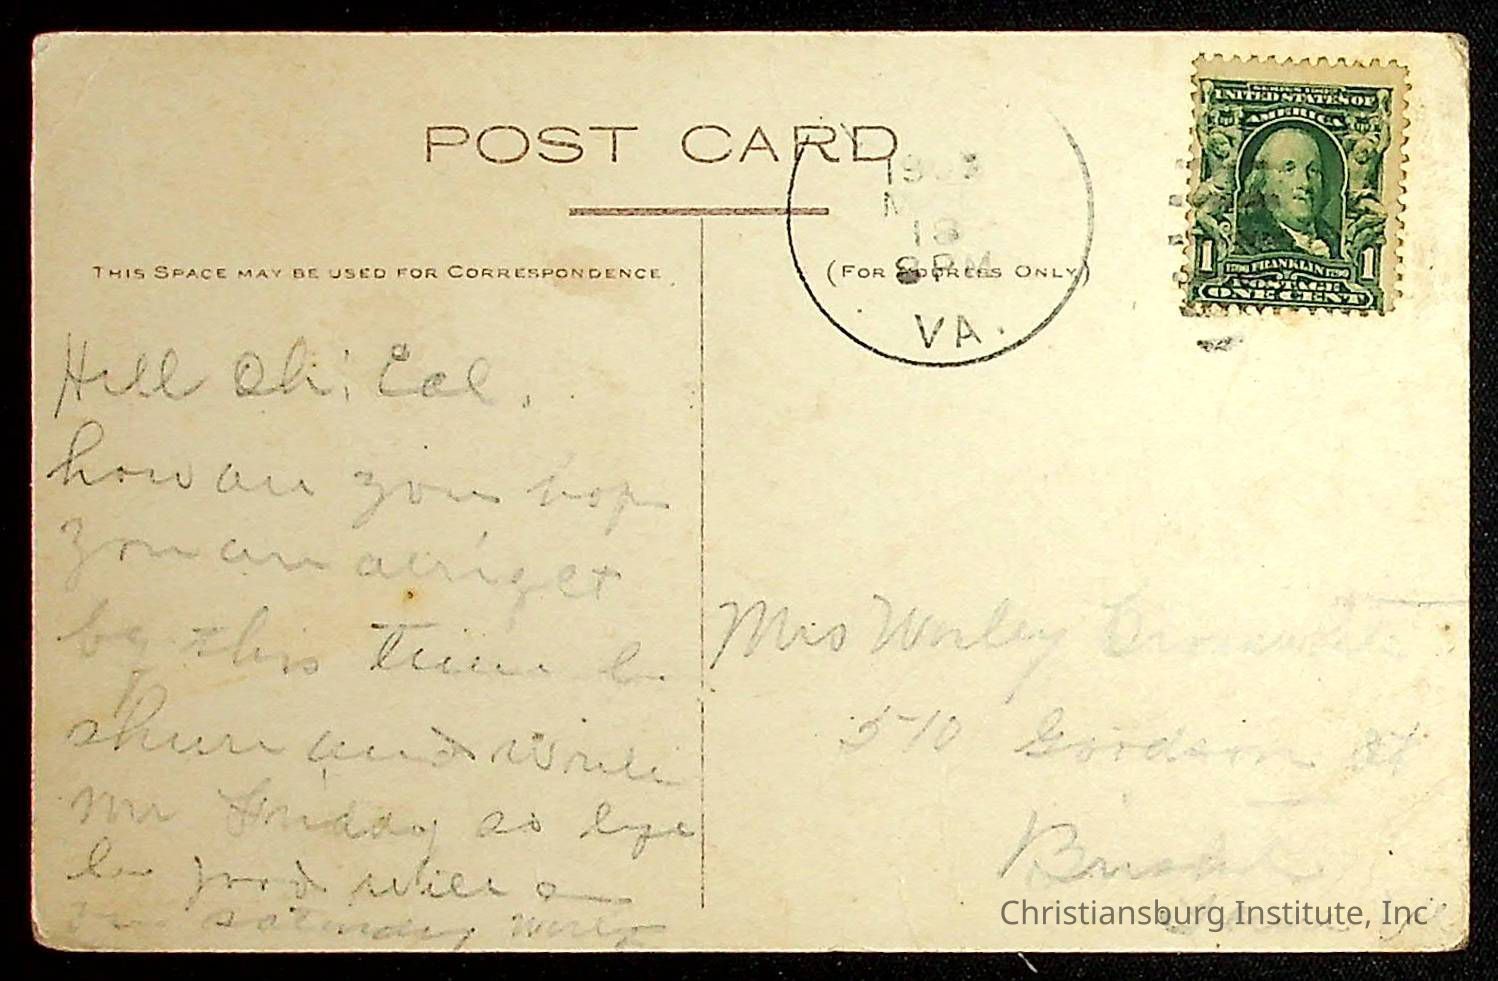 POST CARD
THIS SPACE MAY BE USED FOR CORRESPONDENCE
(FOR ADDRESS ONLY)
18
8 PM
VA.
SERIES 1902
UNITED STATES OF
AMERICA
1 1790 FRANKLIN 1790 1
POSTAGE
ONE CENT
Hell Oh! Cal.
how are you hop
you are alright
by this time be
shure and write
me Friday so
be good will
saturday
Mrs Worley
510 Goodson St
Bristol
Christiansburg Institute, Inc